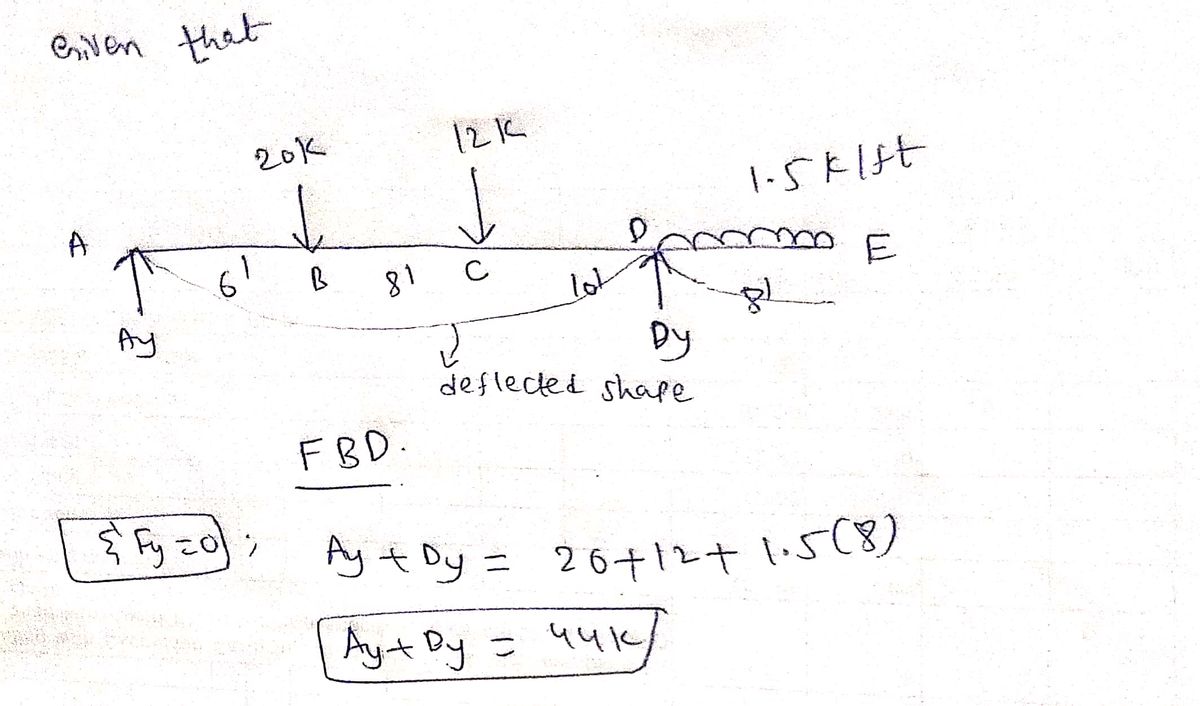 Given that
20K 12K
1.5 K/ft
A D E
6' B 8' C 10' 8'
Ay Dy
deflected shape
FBD.
ΣFy=0; Ay + Dy = 20+12+ 1.5(8)
Ay+Dy = 44K